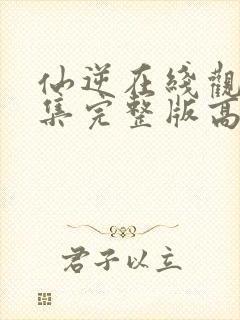 仙逆在线觀
集完整版高
君子以立